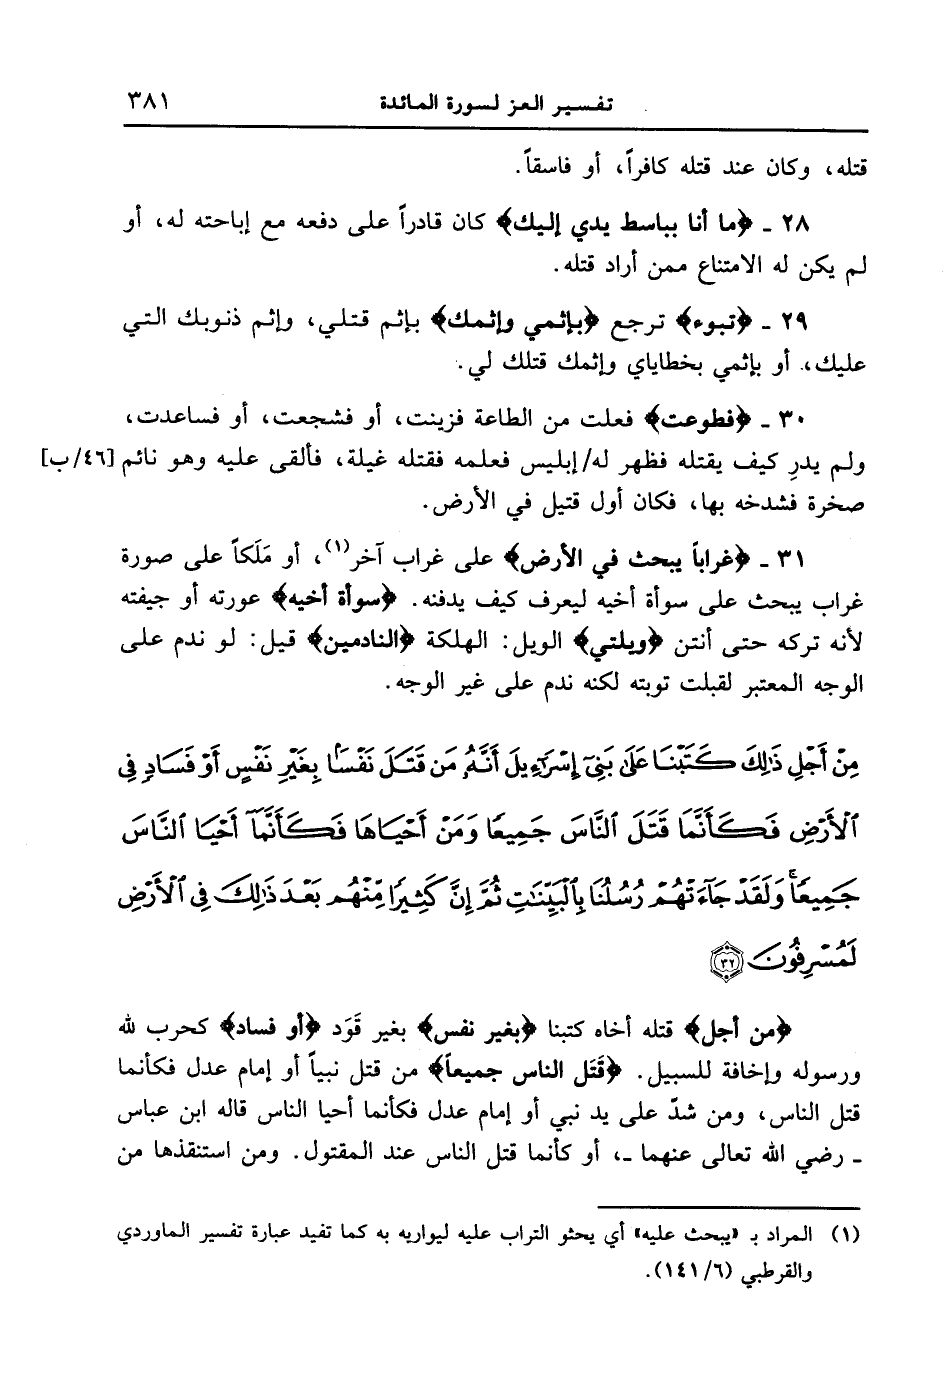 تفسير العز لسورة المائدة ٣٨١
قتله، وكان عند قتله كافراً، أو فاسقاً.
٢٨ ـ ﴿ما أنا بباسط يدي إليك﴾ كان قادراً على دفعه مع إباحته له، أو
لم يكن له الامتناع ممن أراد قتله.
٢٩ ـ ﴿تبوء﴾ ترجع ﴿بإثمي وإثمك﴾ بإثم قتلي، وإثم ذنوبك التي
عليك، أو بإثمي بخطاياي وإثمك قتلك لي.
٣٠ ـ ﴿فطوعت﴾ فعلت من الطاعة فزينت، أو فشجعت، أو فساعدت،
ولم يدرِ كيف يقتله فظهر له/إبليس فعلمه فقتله غيلة، فألقى عليه وهو نائم [٤٦/ب]
صخرة فشدخه بها، فكان أول قتيل في الأرض.
٣١ ـ ﴿غراباً يبحث في الأرض﴾ على غراب آخر(١)، أو مَلَكاً على صورة
غراب يبحث على سوأة أخيه ليعرف كيف يدفنه. ﴿سوأة أخيه﴾ عورته أو جيفته
لأنه تركه حتى أنتن ﴿ويلتي﴾ الويل: الهلكة ﴿النادمين﴾ قيل: لو ندم على
الوجه المعتبر لقبلت توبته لكنه ندم على غير الوجه.
مِنْ أَجْلِ ذَٰلِكَ كَتَبْنَا عَلَىٰ بَنِىٓ إِسْرَٰٓءِيلَ أَنَّهُۥ مَن قَتَلَ نَفْسًۢا بِغَيْرِ نَفْسٍ أَوْ فَسَادٍ فِى
ٱلْأَرْضِ فَكَأَنَّمَا قَتَلَ ٱلنَّاسَ جَمِيعًا وَمَنْ أَحْيَاهَا فَكَأَنَّمَآ أَحْيَا ٱلنَّاسَ
جَمِيعًاۚ وَلَقَدْ جَآءَتْهُمْ رُسُلُنَا بِٱلْبَيِّنَٰتِ ثُمَّ إِنَّ كَثِيرًا مِّنْهُم بَعْدَ ذَٰلِكَ فِى ٱلْأَرْضِ
لَمُسْرِفُونَ ٣٢
﴿من أجل﴾ قتله أخاه كتبنا ﴿بغير نفس﴾ بغير قَوَد ﴿أو فساد﴾ كحرب لله
ورسوله وإخافة للسبيل. ﴿قَتَل الناس جميعاً﴾ من قتل نبياً أو إمام عدل فكأنما
قتل الناس، ومن شدّ على يد نبي أو إمام عدل فكأنما أحيا الناس قاله ابن عباس
ـ رضي الله تعالى عنهما ـ، أو كأنما قتل الناس عند المقتول. ومن استنقذها من
(١) المراد بـ «يبحث عليه» أي يحثو التراب عليه ليواريه به كما تفيد عبارة تفسير الماوردي
والقرطبي (٦/١٤١).